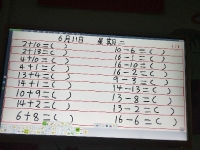 6月11日 星期二
2+10=( )
4+13=( )
4+10=( )
4+1=( )
13+4=( )
14+1=( )
10+9=( )
14+2=( )
6+8=( )
10-6=( )
16-1=( )
16-10=( )
16-2=( )
9-3=( )
14-13=( )
13-8=( )
13-2=( )
16-6=( )